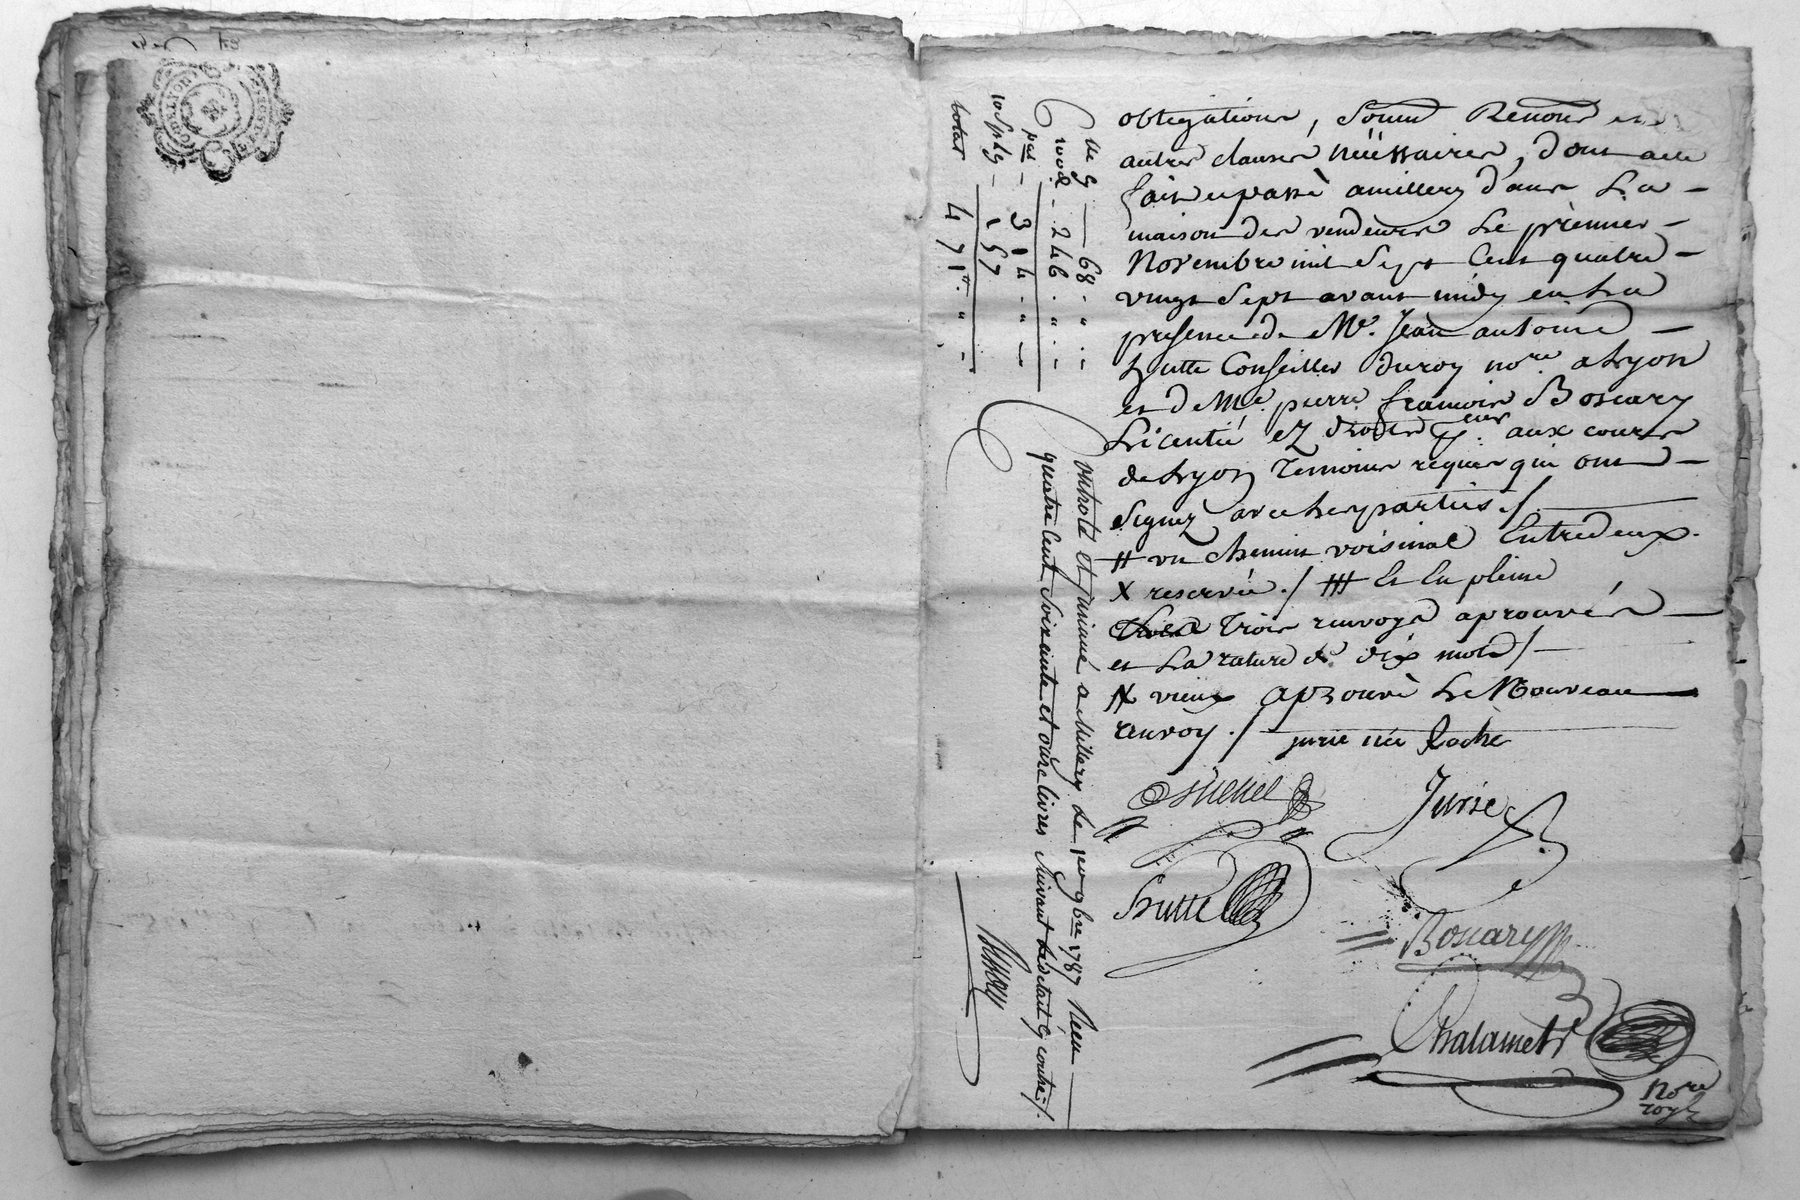 obligations, soumd Renond et
autres clauses nécéssaires, dont acte
fait et passé a millery dans La
maison des vendeurs Le premier
Novembre mil Sept Cent quatre
vingt Sept avant midy en La
presence de Me. Jean antoine
hutte Conseiller du roy nore. a Lyon
et de Me. pierre francois Boscary
Licentié ez droits aux cours
de Lyon Temoins requis qui ont
Signez avec les parties ./.
# un chemin voisinal Entredeux.
X reservée ./ ## Et En pleine
Trois renvoys aprouvés
et La rature de dix mots /
# vieux aprouvé Le Nouveau
renvoy ./ jurie née Roche
Jurie
hutte
Boscary
Chalamel
Nore
roy
Controlé et insinué a Millery Le 1er 9bre 1787 Recu
quatre Cent Soixante et onze livres Suivant Le detail Cy contre ./.
68 . " . "
246 . " . "
314 . " . "
10 s. p. lt - 157
total 471 lt . " . "